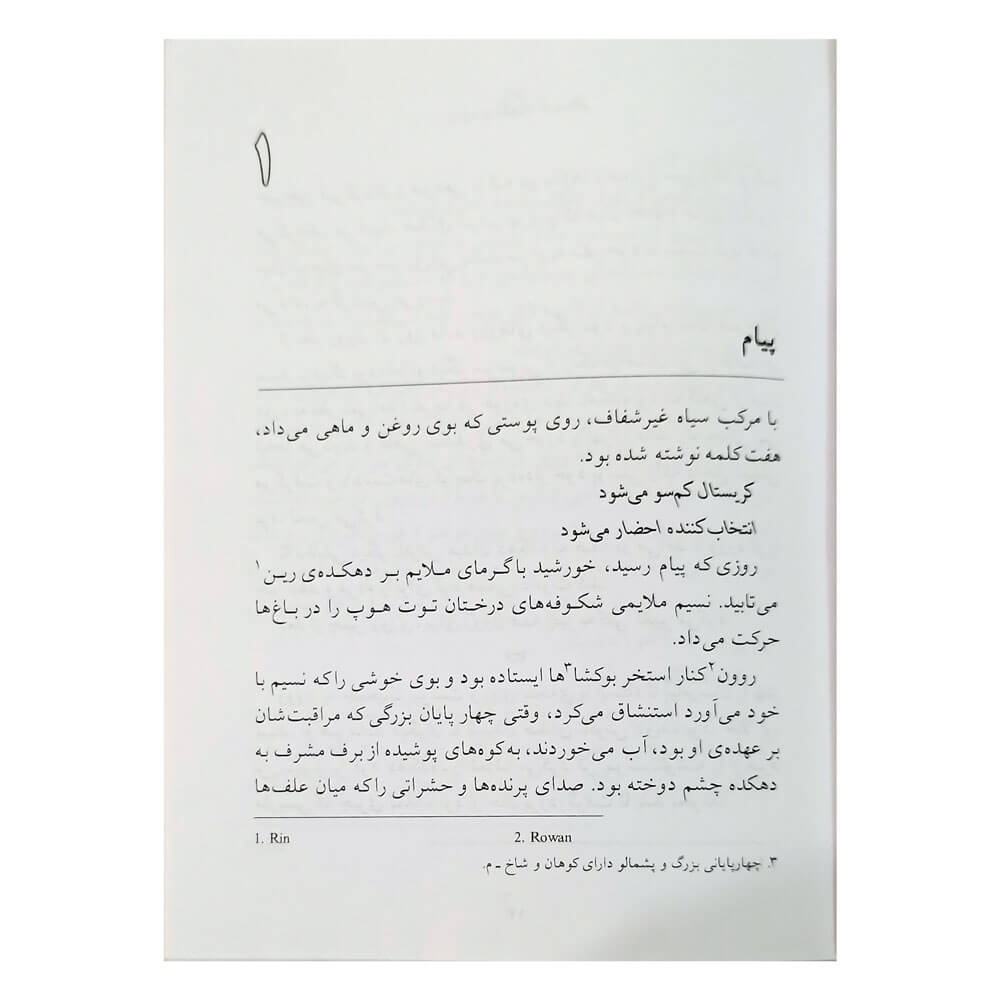 ۱
پیام
با مرکب سیاه غیرشفاف، روی پوستی که بوی روغن و ماهی می‌داد،
هفت کلمه نوشته شده بود.
کریستال کم‌سو می‌شود
انتخاب‌کننده احضار می‌شود
روزی که پیام رسید، خورشید با گرمای ملایم بر دهکده‌ی رین۱
می‌تابید. نسیم ملایمی شکوفه‌های درختان توت هوپ را در باغ‌ها
حرکت می‌داد.
روون۲ کنار استخر بوکشا۳ها ایستاده بود و بوی خوشی را که نسیم با
خود می‌آورد استنشاق می‌کرد، وقتی چهار پایان بزرگی که مراقبت‌شان
بر عهده‌ی او بود، آب می‌خوردند، به کوه‌های پوشیده از برف مشرف به
دهکده چشم دوخته بود. صدای پرنده‌ها و حشراتی را که میان علف‌ها
1. Rin 2. Rowan
۳. چهارپایانی بزرگ و پشمالو دارای کوهان و شاخ ـ م.